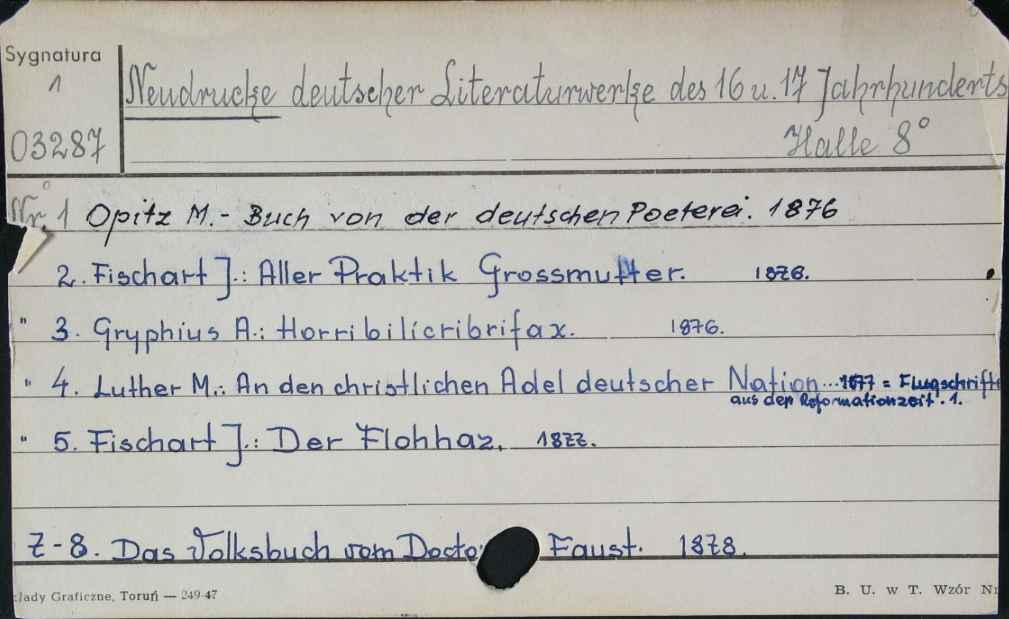 Sygnatura
1
03287
Neudrucke deutscher Literaturwerke des 16 u. 17 Jahrhunderts
Halle 8°
Nr. 1 Opitz M. - Buch von der deutschen Poeterei. 1876
2. Fischart J.: Aller Praktik Grossmutter. 1876.
" 3. Gryphius A.: Horribilicribrifax. 1876.
" 4. Luther M.: An den christlichen Adel deutscher Nation... 1877 = Flugschrifte
aus der Reformationzeit. 1.
" 5. Fischart J.: Der Flohhaz. 1877.
7-8. Das Volksbuch vom Docto Faust. 1878.
łady Graficzne, Toruń — 249-47
B. U. w T. Wzór Nr